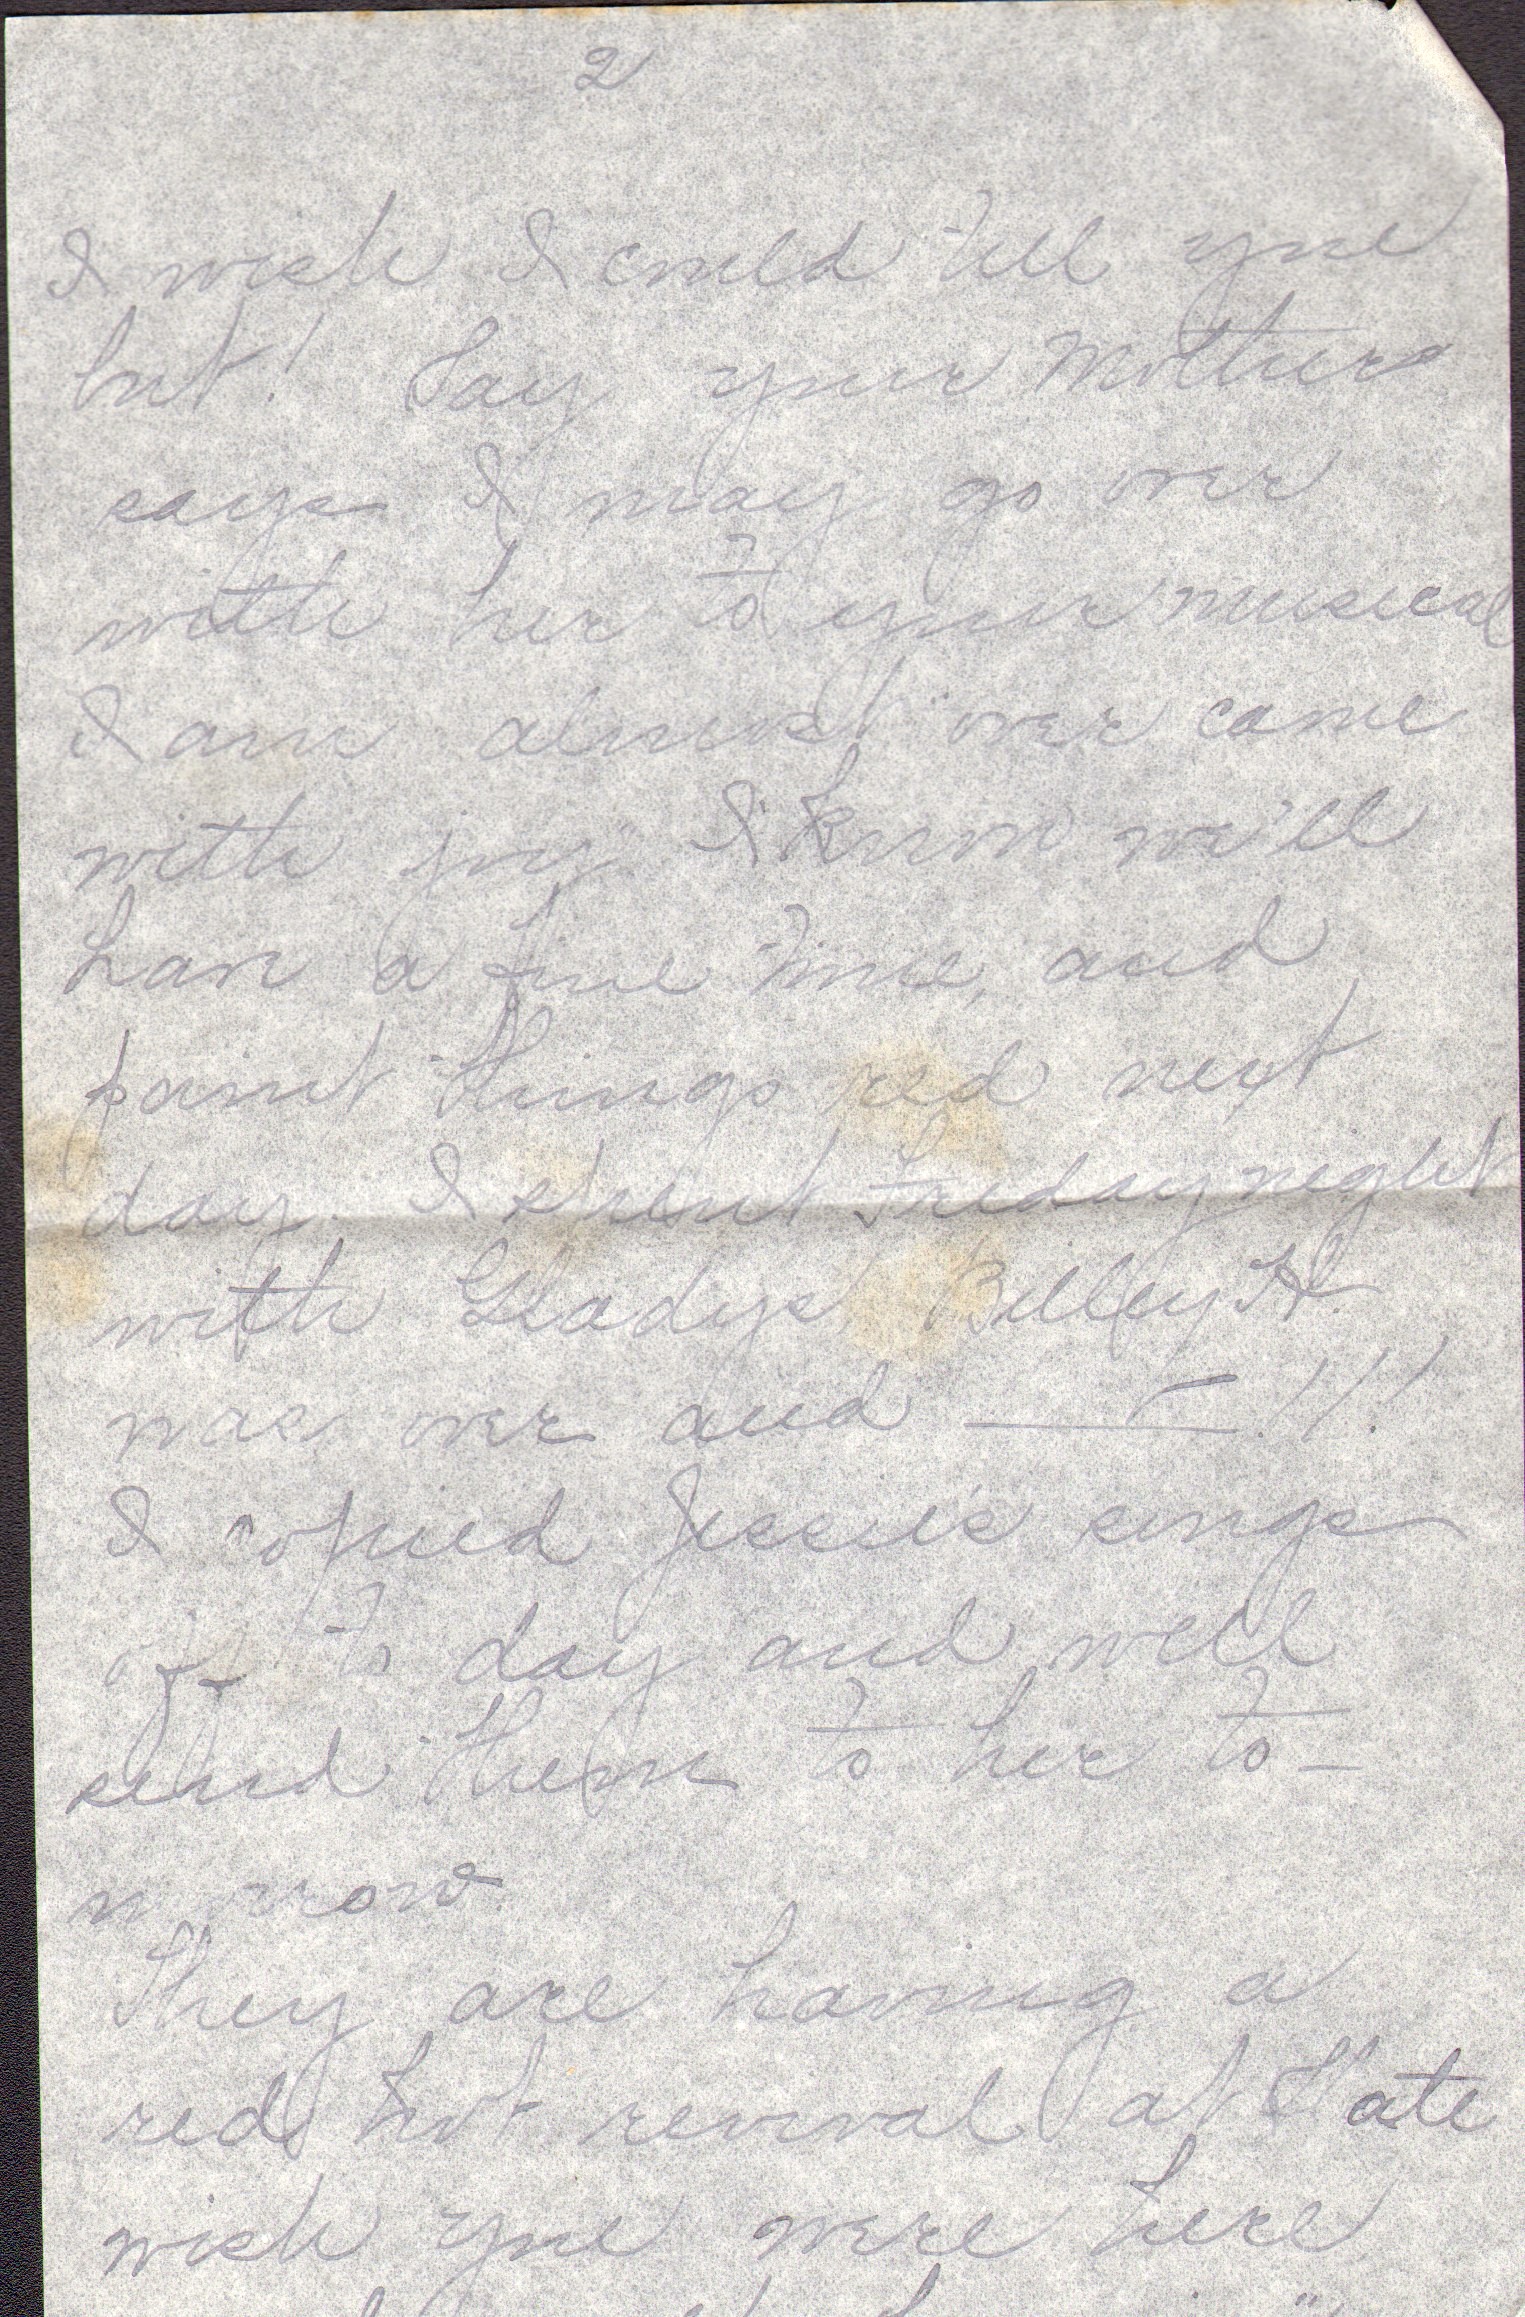 2
I wish I could tell you
but! Say your Mother
says I may go over
with her to your musical
I am almost over come
with joy I know we'll
have a fine time, and
paint things red next
day. I spent Friday night
with Gladys, Billey H.
was over and ———!!!
I copied Jessie's songs
off to day and will
send them to her to-
morrow.
They are having a
red hot revival at
wish you were here